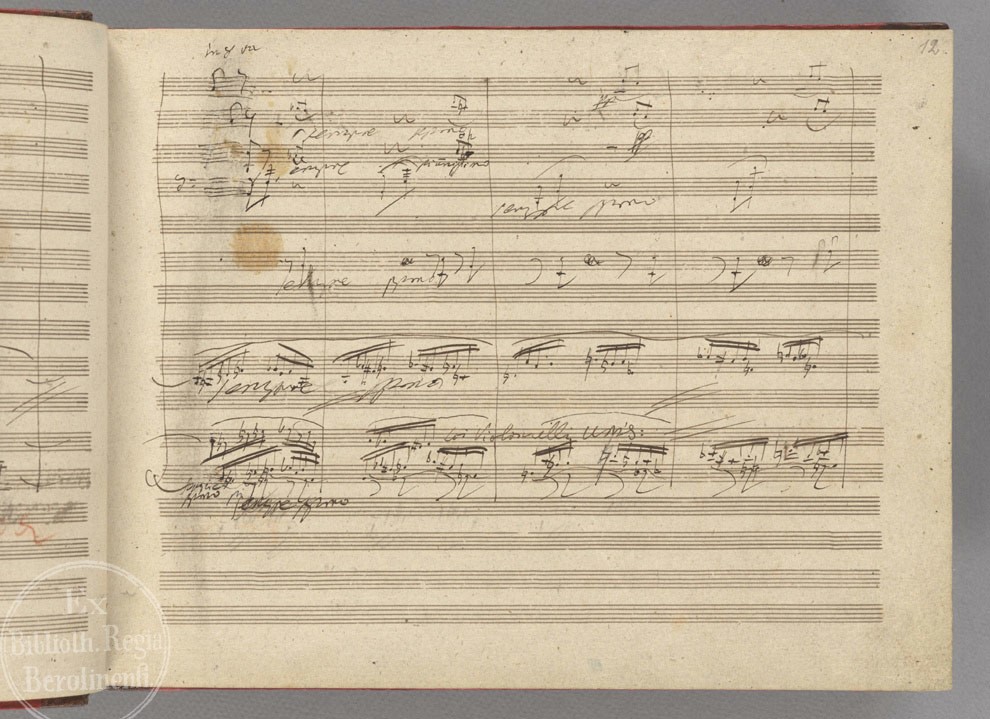 in 8va
12.
sempre piano
sempre pianissimo
sempre piano
sempre piano
sempre piano
coi Violoncelli unis:
sempre piano
sempre piano
Ex
Biblioth. Regia
Berolinensi